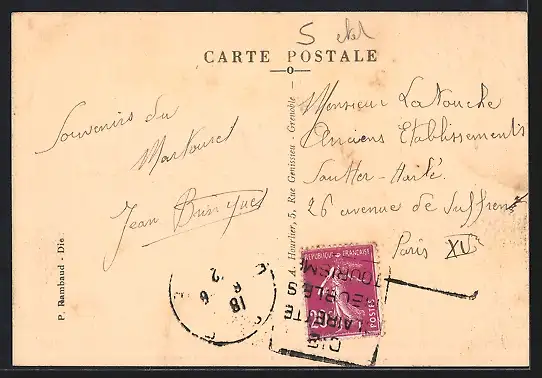 CARTE POSTALE
Souvenirs du
Martouret
Jean
P. Rambaud - Die
A. Hourlier, 5, Rue Génissieu - Grenoble
Monsieur LaTouche
Anciens Etablissements
Sautter-Harlé.
26 avenue de Suffren
Paris XV
REPUBLIQUE FRANÇAISE
POSTES
TOURISME
18